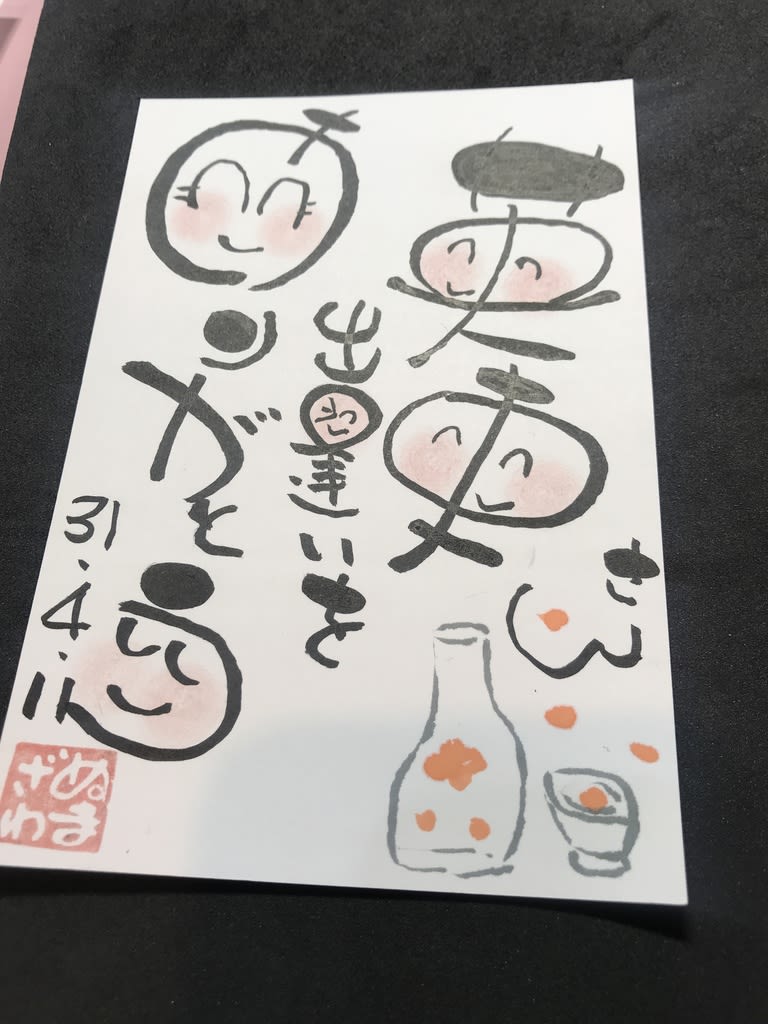 英吏さん
出逢いを
ありがとう
31.4.11
ぬま
ざわ